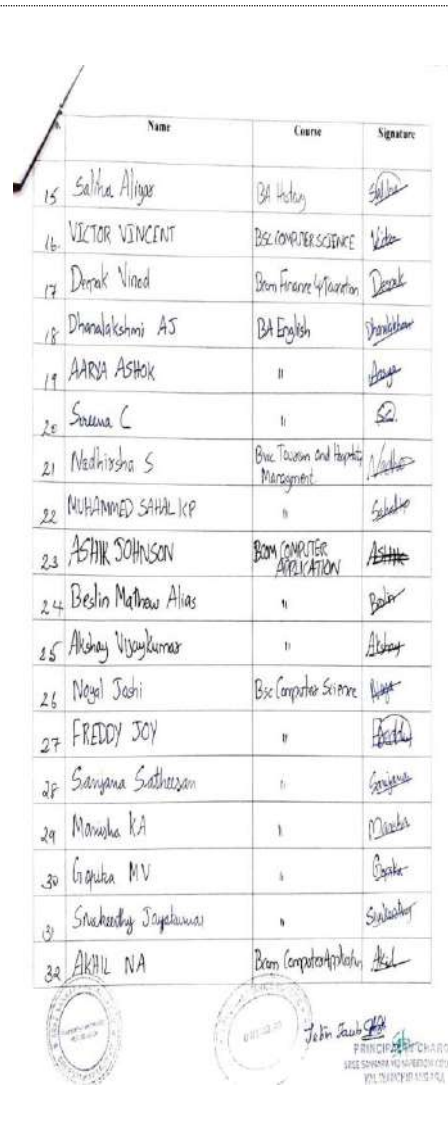 Name Course Signature
15 Saliha Aliyar BA History Saliha
16. VICTOR VINCENT BSC COMPUTER SCIENCE Victor
17 Deepak Vinod Bcom Finance & Taxation Deepak
18 Dhanalakshmi AJ BA English Dhanalakshmi
19 AARYA ASHOK "
20 Sreena C "
21 Nedhirsha S Bvoc Tourism and Hospitality
Managment
22 MUHAMMED SAHAL KP " Sahal
23 ASHIK JOHNSON BCOM COMPUTER
APPLICATION ASHIK
24 Beslin Mathew Alias " Beslin
25 Akshay Vijaykumar " Akshay
26 Noyal Joshi Bsc Computer Science
27 FREDDY JOY " Freddy
28 Sanjana Satheesan " Sanjana
29 Manisha KA " Manisha
30 Gopika MV " Gopika
31 Sreekeerthy Jayakumar " Sreekeerthy
32 AKHIL NA Bcom Computer Application Akhil
PRINCIPAL IN CHARG